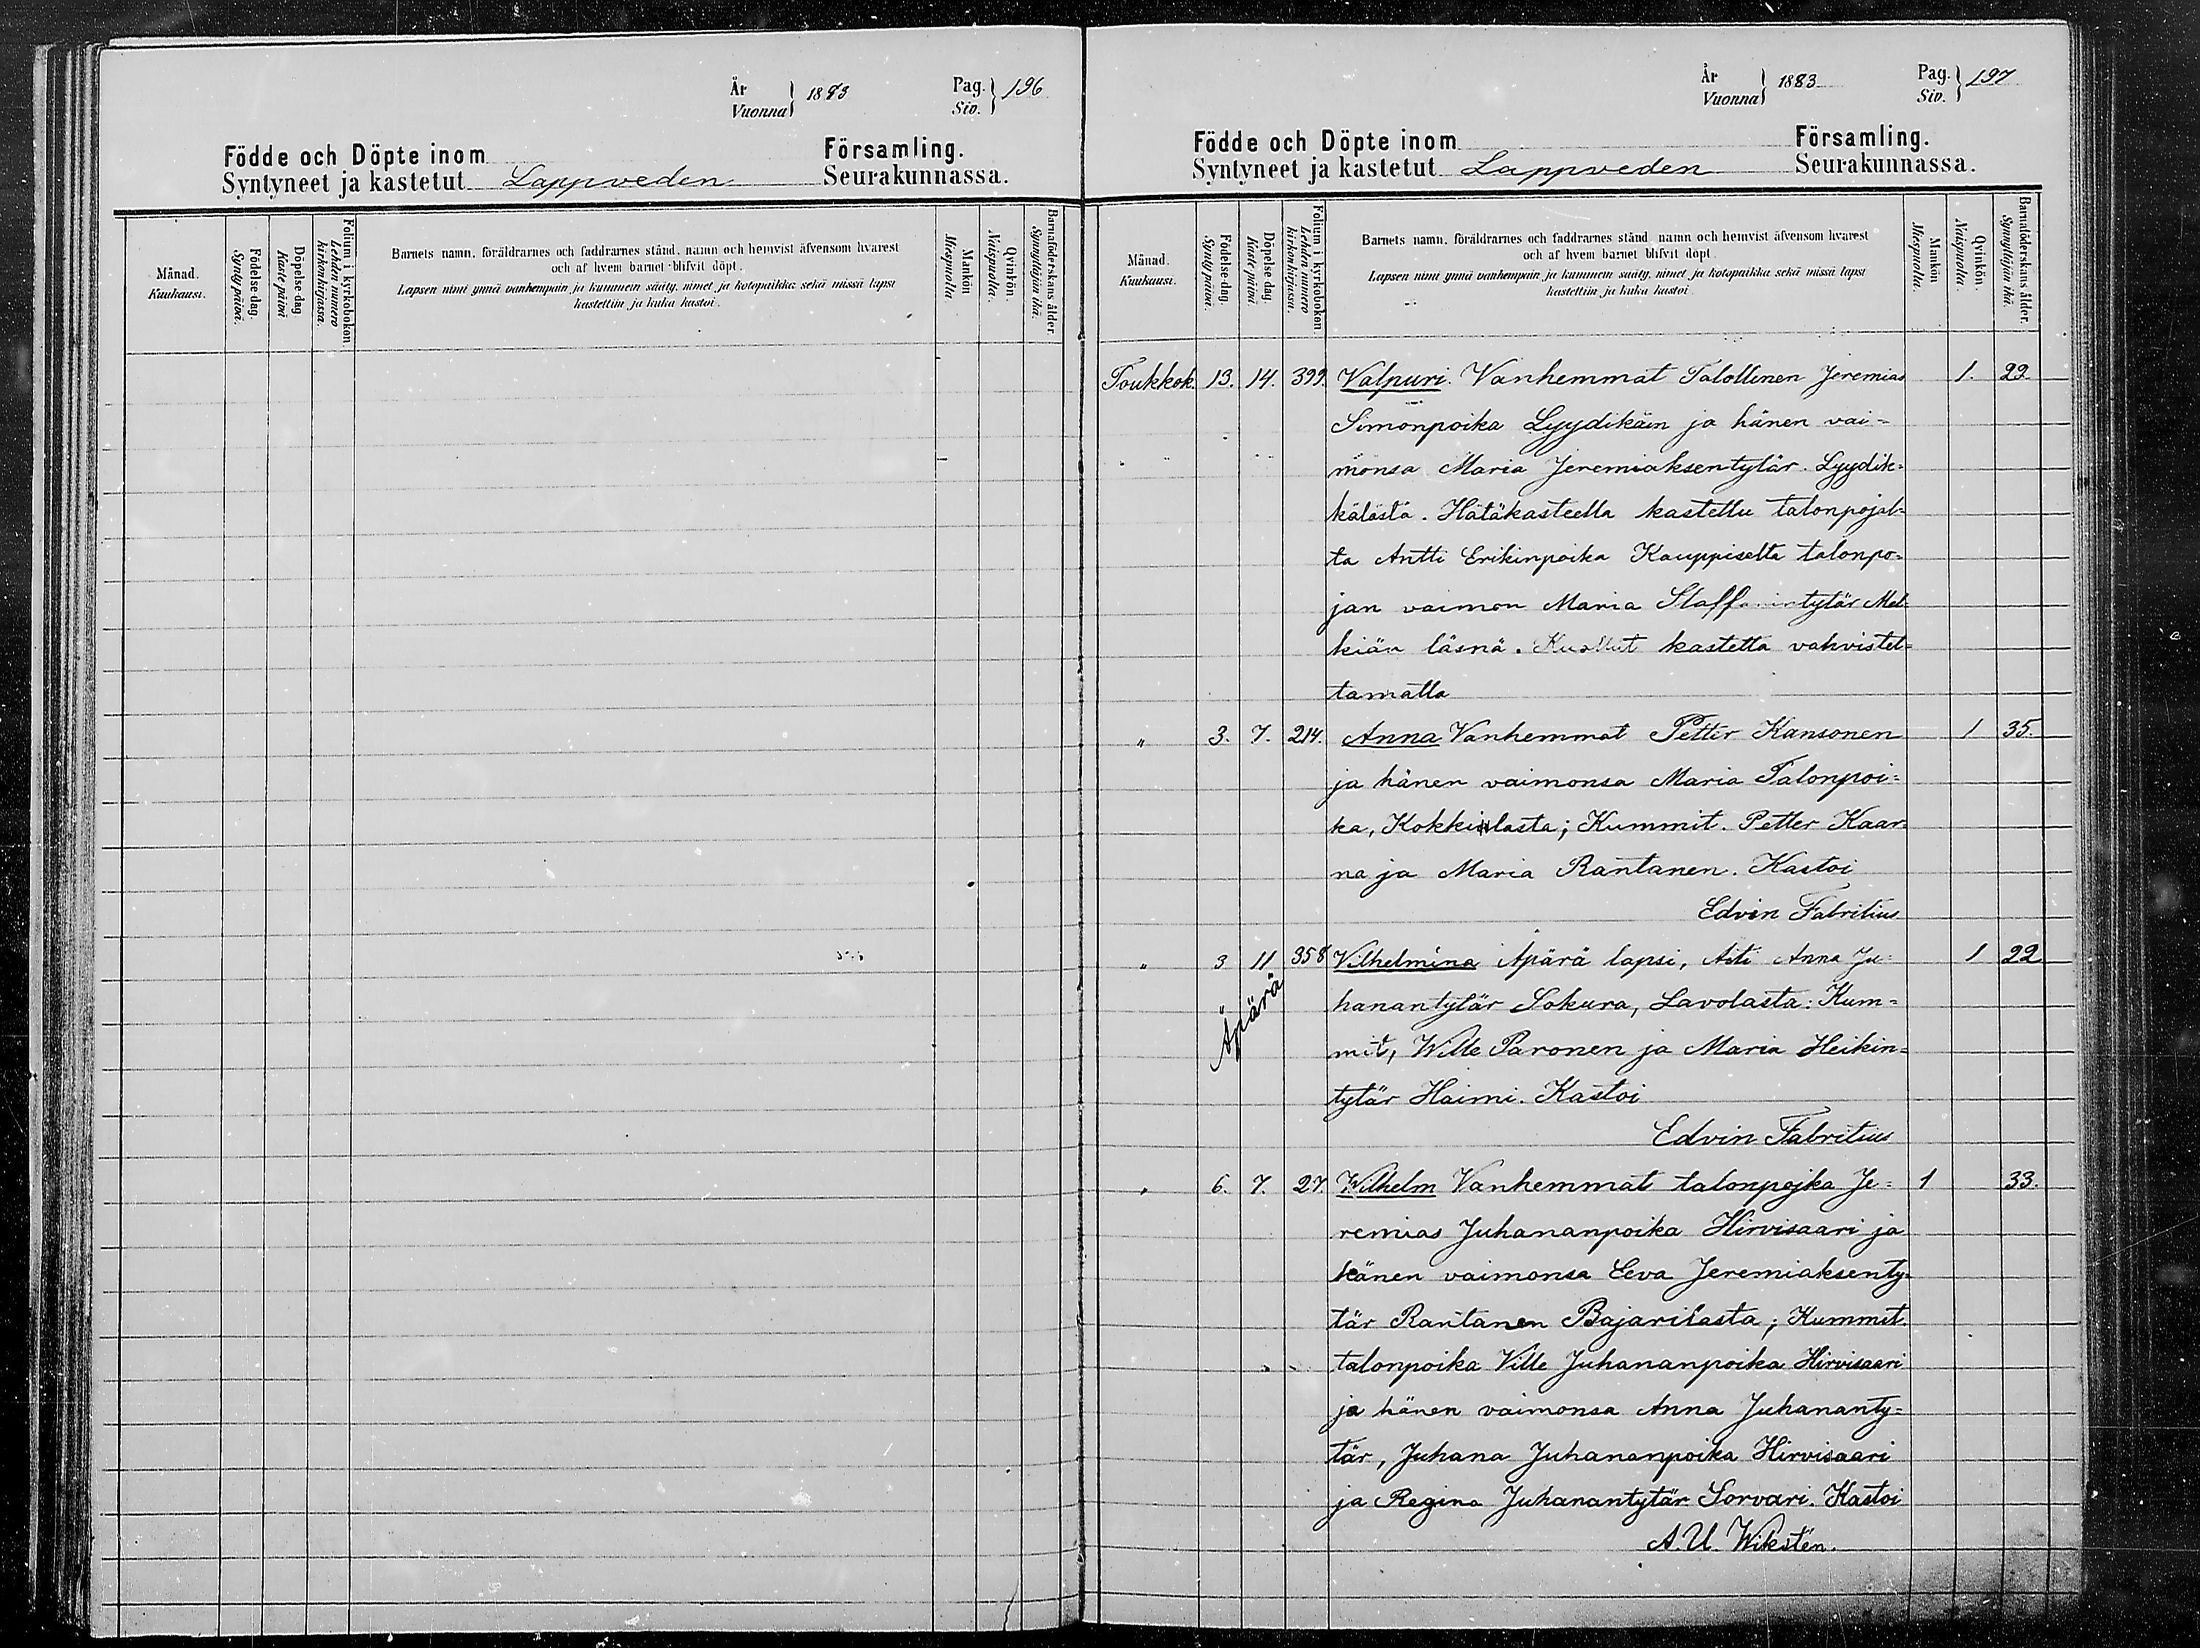 År
Vuonna } 1883
Pag.
Siv. } 196
Födde och Döpte inom Församling.
Syntyneet ja kastetut Lappveden Seurakunnassa.
Månad.
Kuukausi.
Födelse-dag.
Synty päivä.
Döpelse dag.
Kaste päivä
Folium i kyrkobokon
Lehden numero
kirkonkirjassa.
Barnets namn, föräldrarnes och faddrarnes stånd, namn och hemvist äfvensom hvarest
och af hvem barnet blifvit döpt.
Lapsen nimi ynnä vanhempain ja kummein sääty, nimet ja kotopaikka sekä missä lapsi
kastettiin ja kuka kastoi.
Mankön
Miespuolta
Qvinkön.
Naispuolta.
Barnaföderskans ålder.
Synnyttäjän ikä.
År
Vuonna } 1883
Pag.
Siv. } 197
Födde och Döpte inom Församling.
Syntyneet ja kastetut Lappveden Seurakunnassa.
Månad.
Kuukausi.
Födelse-dag.
Synty päivä.
Döpelse dag.
Kaste päivä.
Folium i kyrkobokon
Lehden numero
kirkonkirjassa.
Barnets namn, föräldrarnes och faddrarnes stånd, namn och hemvist äfvensom hvarest
och af hvem barnet blifvit döpt.
Lapsen nimi ynnä vanhempain ja kummein sääty, nimet ja kotopaikka sekä missä lapsi
kastettiin ja kuka kastoi.
Mankön
Miespuolta.
Qvinkön.
Naispuolta.
Barnaföderskans ålder.
Synnyttäjän ikä.
Toukkok. 13. 14. 399. Valpuri. Vanhemmat Talollinen Jeremias 1. 22
Simonpoika Lyydikäin ja hänen vai=
monsa Maria Jeremiaksentytär. Lyydik=
kälästä. Hätäkasteella kastettu talonpojal=
ta Antti Erikinpoika Kauppiselta talonpo=
jan vaimon Maria Staffanintytär Mel=
kiän läsnä. Kuollut kastetta vahvistet=
tamatta
" 3. 7. 214. Anna Vanhemmat Petter Kansonen 1 35.
ja hänen vaimonsa Maria Talonpoi=
ka, Kokkialasta; Kummit. Petter Kaar=
na ja Maria Rantanen. Kastoi
Edvin Fabritius
" 3 11 358 Vilhelmina Äpärä lapsi, Äiti Anna Ju= 1 22
Äpärä
hanantytär Sokura, Lavolasta: Kum=
mit, Wille Paronen ja Maria Heikin=
tytär Haimi. Kastoi
Edvin Fabritius
" 6. 7. 27. Wilhelm Vanhemmat talonpojka Je= 1 33.
remias Juhananpoika Hirvisaari ja
hänen vaimonsa Eeva Jeremiaksenty=
tär Rantanen Bajarilasta; Kummit.
talonpoika Ville Juhananpoika Hirvisaari
ja hänen vaimonsa Anna Juhananty=
tär, Juhana Juhananpoika Hirvisaari
ja Regina Juhanantytär Sorvari. Kastoi
A. U. Wikstén.